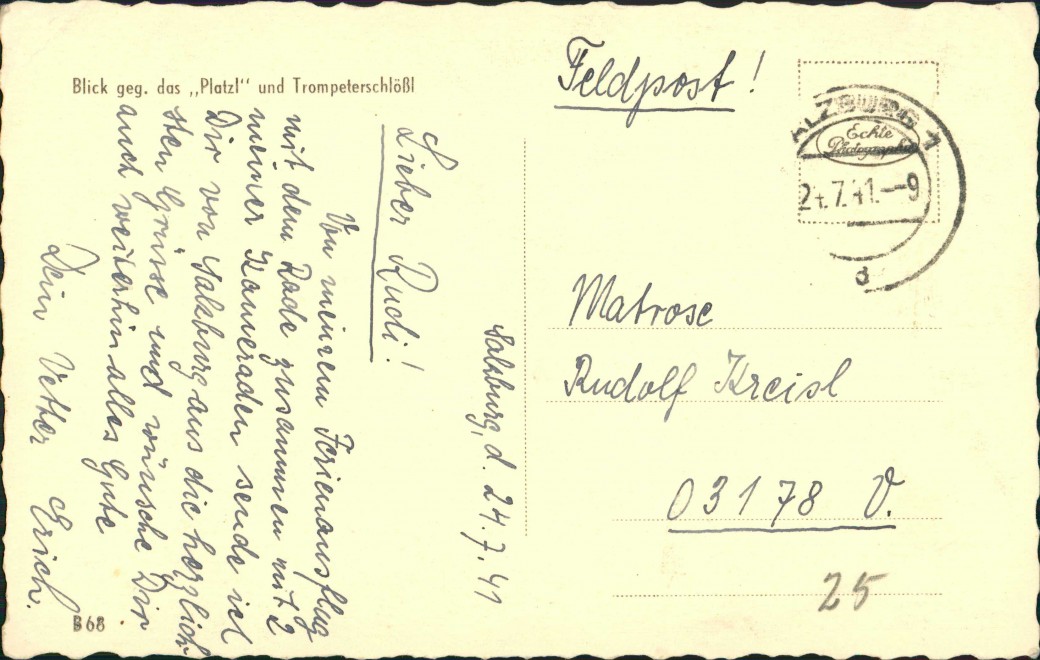 Blick geg. das „Platzl" und Trompeterschlößl
Feldpost!
ALZBURG 1
Echte
Photographie
24.7.41.—9
d
Salzburg, d. 24.7.41
Lieber Rudi!
Von meinem Ferienausflug
mit dem Rade zusammen mit 2
meiner Kameraden sende ich
Dir von Salzburg aus die herzlich-
sten Grüsse und wünsche Dir
auch weiterhin alles Gute
Dein Vetter Erich.
Matrose
Rudolf Kreisl
03178 V.
25
B 68